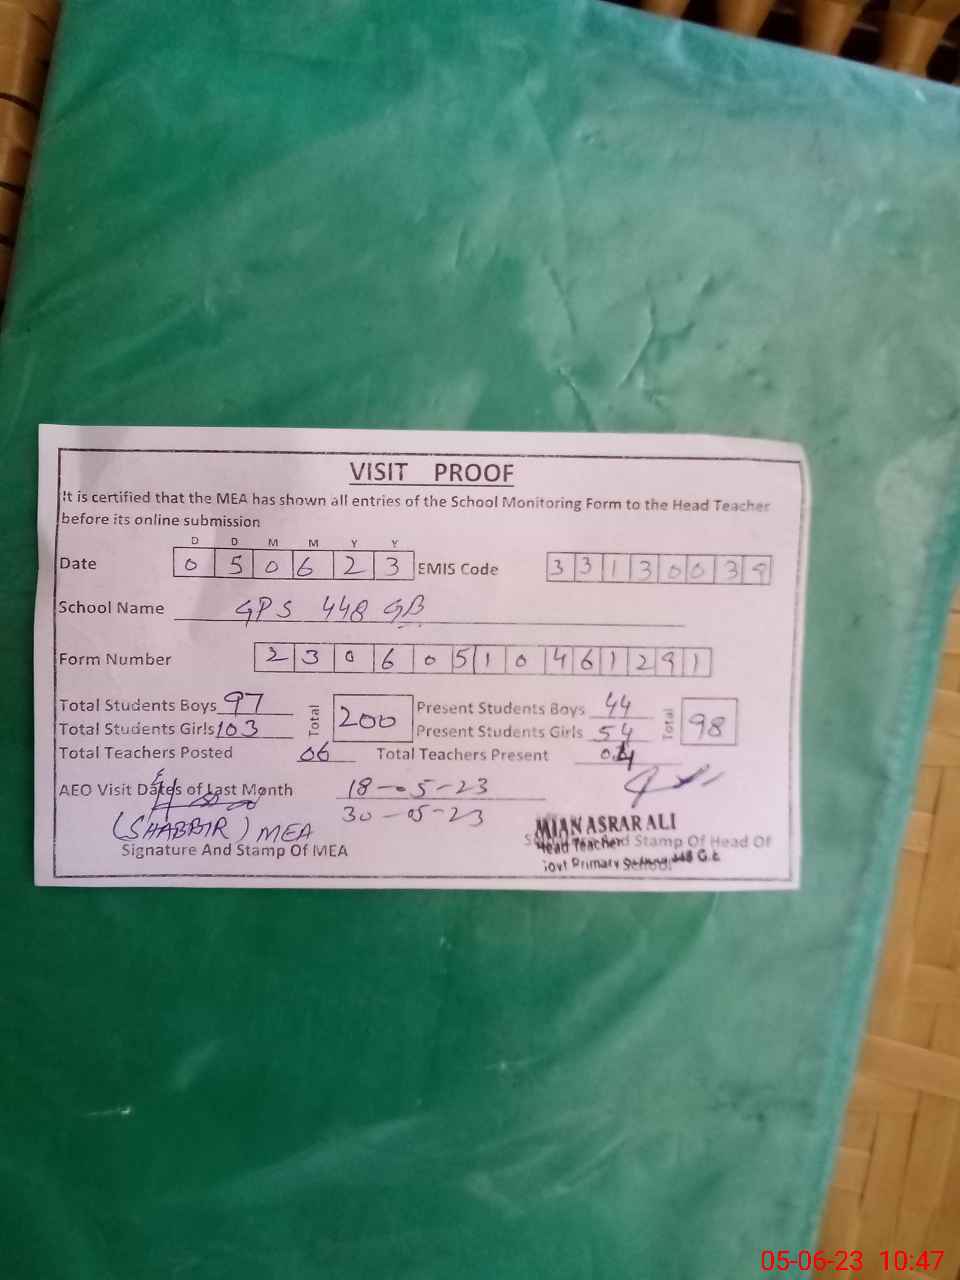 VISIT PROOF
It is certified that the MEA has shown all entries of the School Monitoring Form to the Head Teacher
before its online submission
D D M M Y Y
Date 0 5 0 6 2 3 EMIS Code 3 3 1 3 0 0 3 9
School Name GPS 448 GB
Form Number 2 3 0 6 0 5 1 0 4 6 1 2 9 1
Total Students Boys 97 Total 200 Present Students Boys 44 Total 98
Total Students Girls 103 Present Students Girls 54
Total Teachers Posted 06 Total Teachers Present
AEO Visit Dates of Last Month 18-05-23
30-05-23
(SHABBIR) MEA
MIAN ASRAR ALI
Signature And Stamp Of MEA
And Stamp Of Head Of
Head Teacher
Govt Primary School
05-06-23 10:47